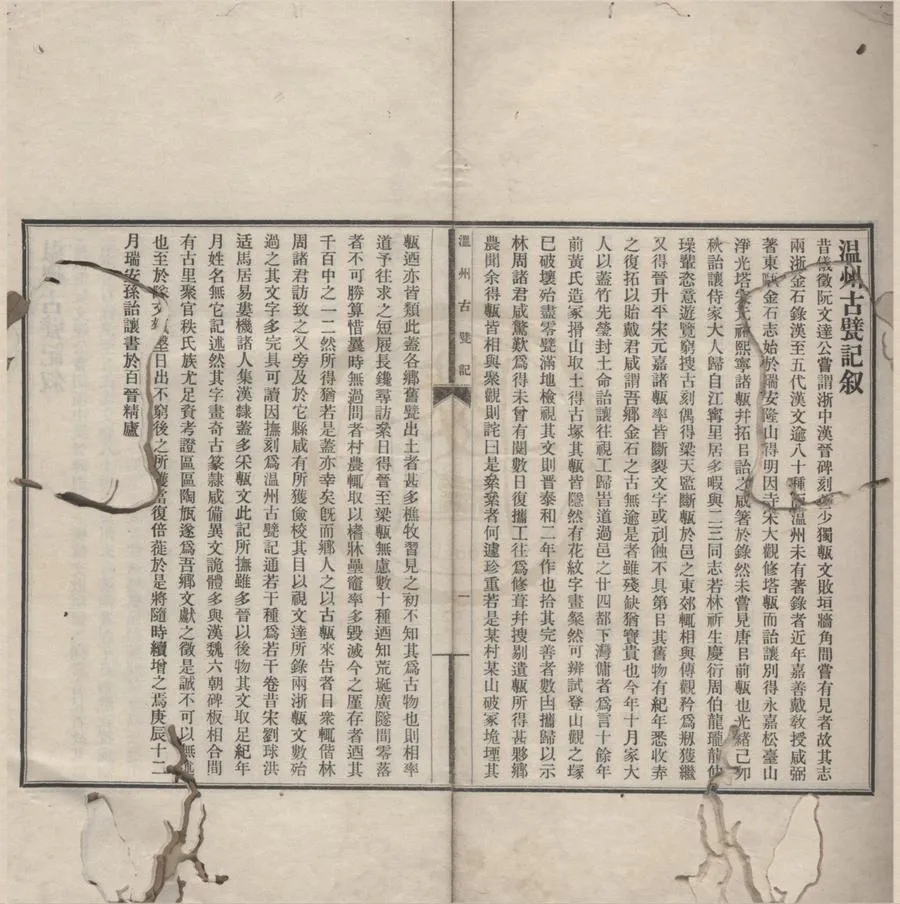 溫州古甓記敘
昔儀徵阮文達公嘗謂浙中漢晉碑刻少獨甎文敗垣牆角間嘗有見者故其志
兩浙金石錄漢至五代漢文逾八十種溫州未有著錄者近年嘉善戴敎授咸弼
著東甌金石志始於瑞安隆山得明因寺宋大觀修塔甎而詒讓別得永嘉松臺山
淨光塔宋元祐熙寧諸甎幷拓㠯詒之咸箸於錄然未嘗見唐㠯前甎也光緒己卯
秋詒讓侍家大人歸自江寧里居多暇與二三同志若林祈生慶衍周伯龍瓏龍仲
璪輩恣意遊覽窮搜古刻偶得梁天監斷甎於邑之東郊輒相與傳觀矜爲剏獲繼
又得晉升平宋元嘉諸甎率皆斷裂文字或刓蝕不具第㠯其舊物有紀年悉收弆
之復拓以貽戴君咸謂吾鄉金石之古無逾是者雖殘缺猶寶貴也今年十月家大
人以蓋竹先塋封土命詒讓往視工歸岀道過邑之廿四都下灣傭者爲言十餘年
前黃氏造冢搰山取土得古塚其甎皆隱然有花紋字畫粲然可辨試登山觀之塚
巳破壞殆盡零甓滿地檢視其文則晉泰和二年作也拾其完善者數凷攜歸以示
林周諸君咸驚歎爲得未曾有閱數日復攜工往爲修葺幷搜剔遺甎所得甚夥鄉
農聞余得甎皆相與聚觀則詫曰是纍纍者何遽珍重若是某村某山破冢垝堙其
溫州古甓記
一
甎迺亦皆類此蓋各鄉舊甓出土者甚多樵牧習見之初不知其爲古物也則相率
道予往求之短屐長鑱尋訪纍日得晉至梁甎無慮數十種迺知荒埏廣隧間零落
者不可勝算惜曩時無過問者村農輒取以楮牀壘竈率多毀滅今之厪存者迺其
千百中之一二然所得猶若是蓋亦幸矣旣而鄉人之以古甎來告者日衆輒偕林
周諸君訪致之又旁及於它縣咸有所獲儉校其目以視文達所錄兩浙甎文數殆
過之其文字多完具可讀因撫刻爲溫州古甓記通若干種爲若干卷昔宋劉球洪
适馬居易婁機諸人集漢隸蓋多宋甎文此記所撫雖多晉以後物其文取足紀年
月姓名無它記述然其字畫奇古篆隸咸備異文詭體多與漢魏六朝碑板相合間
有古里聚官秩氏族尤足資考證區區陶旊遂爲吾鄉文獻之徵是誠不可以無
也至於斷日出不窮後之所獲當復倍蓰於是將隨時續增之焉庚辰十二
月瑞安孫詒讓書於百晉精廬